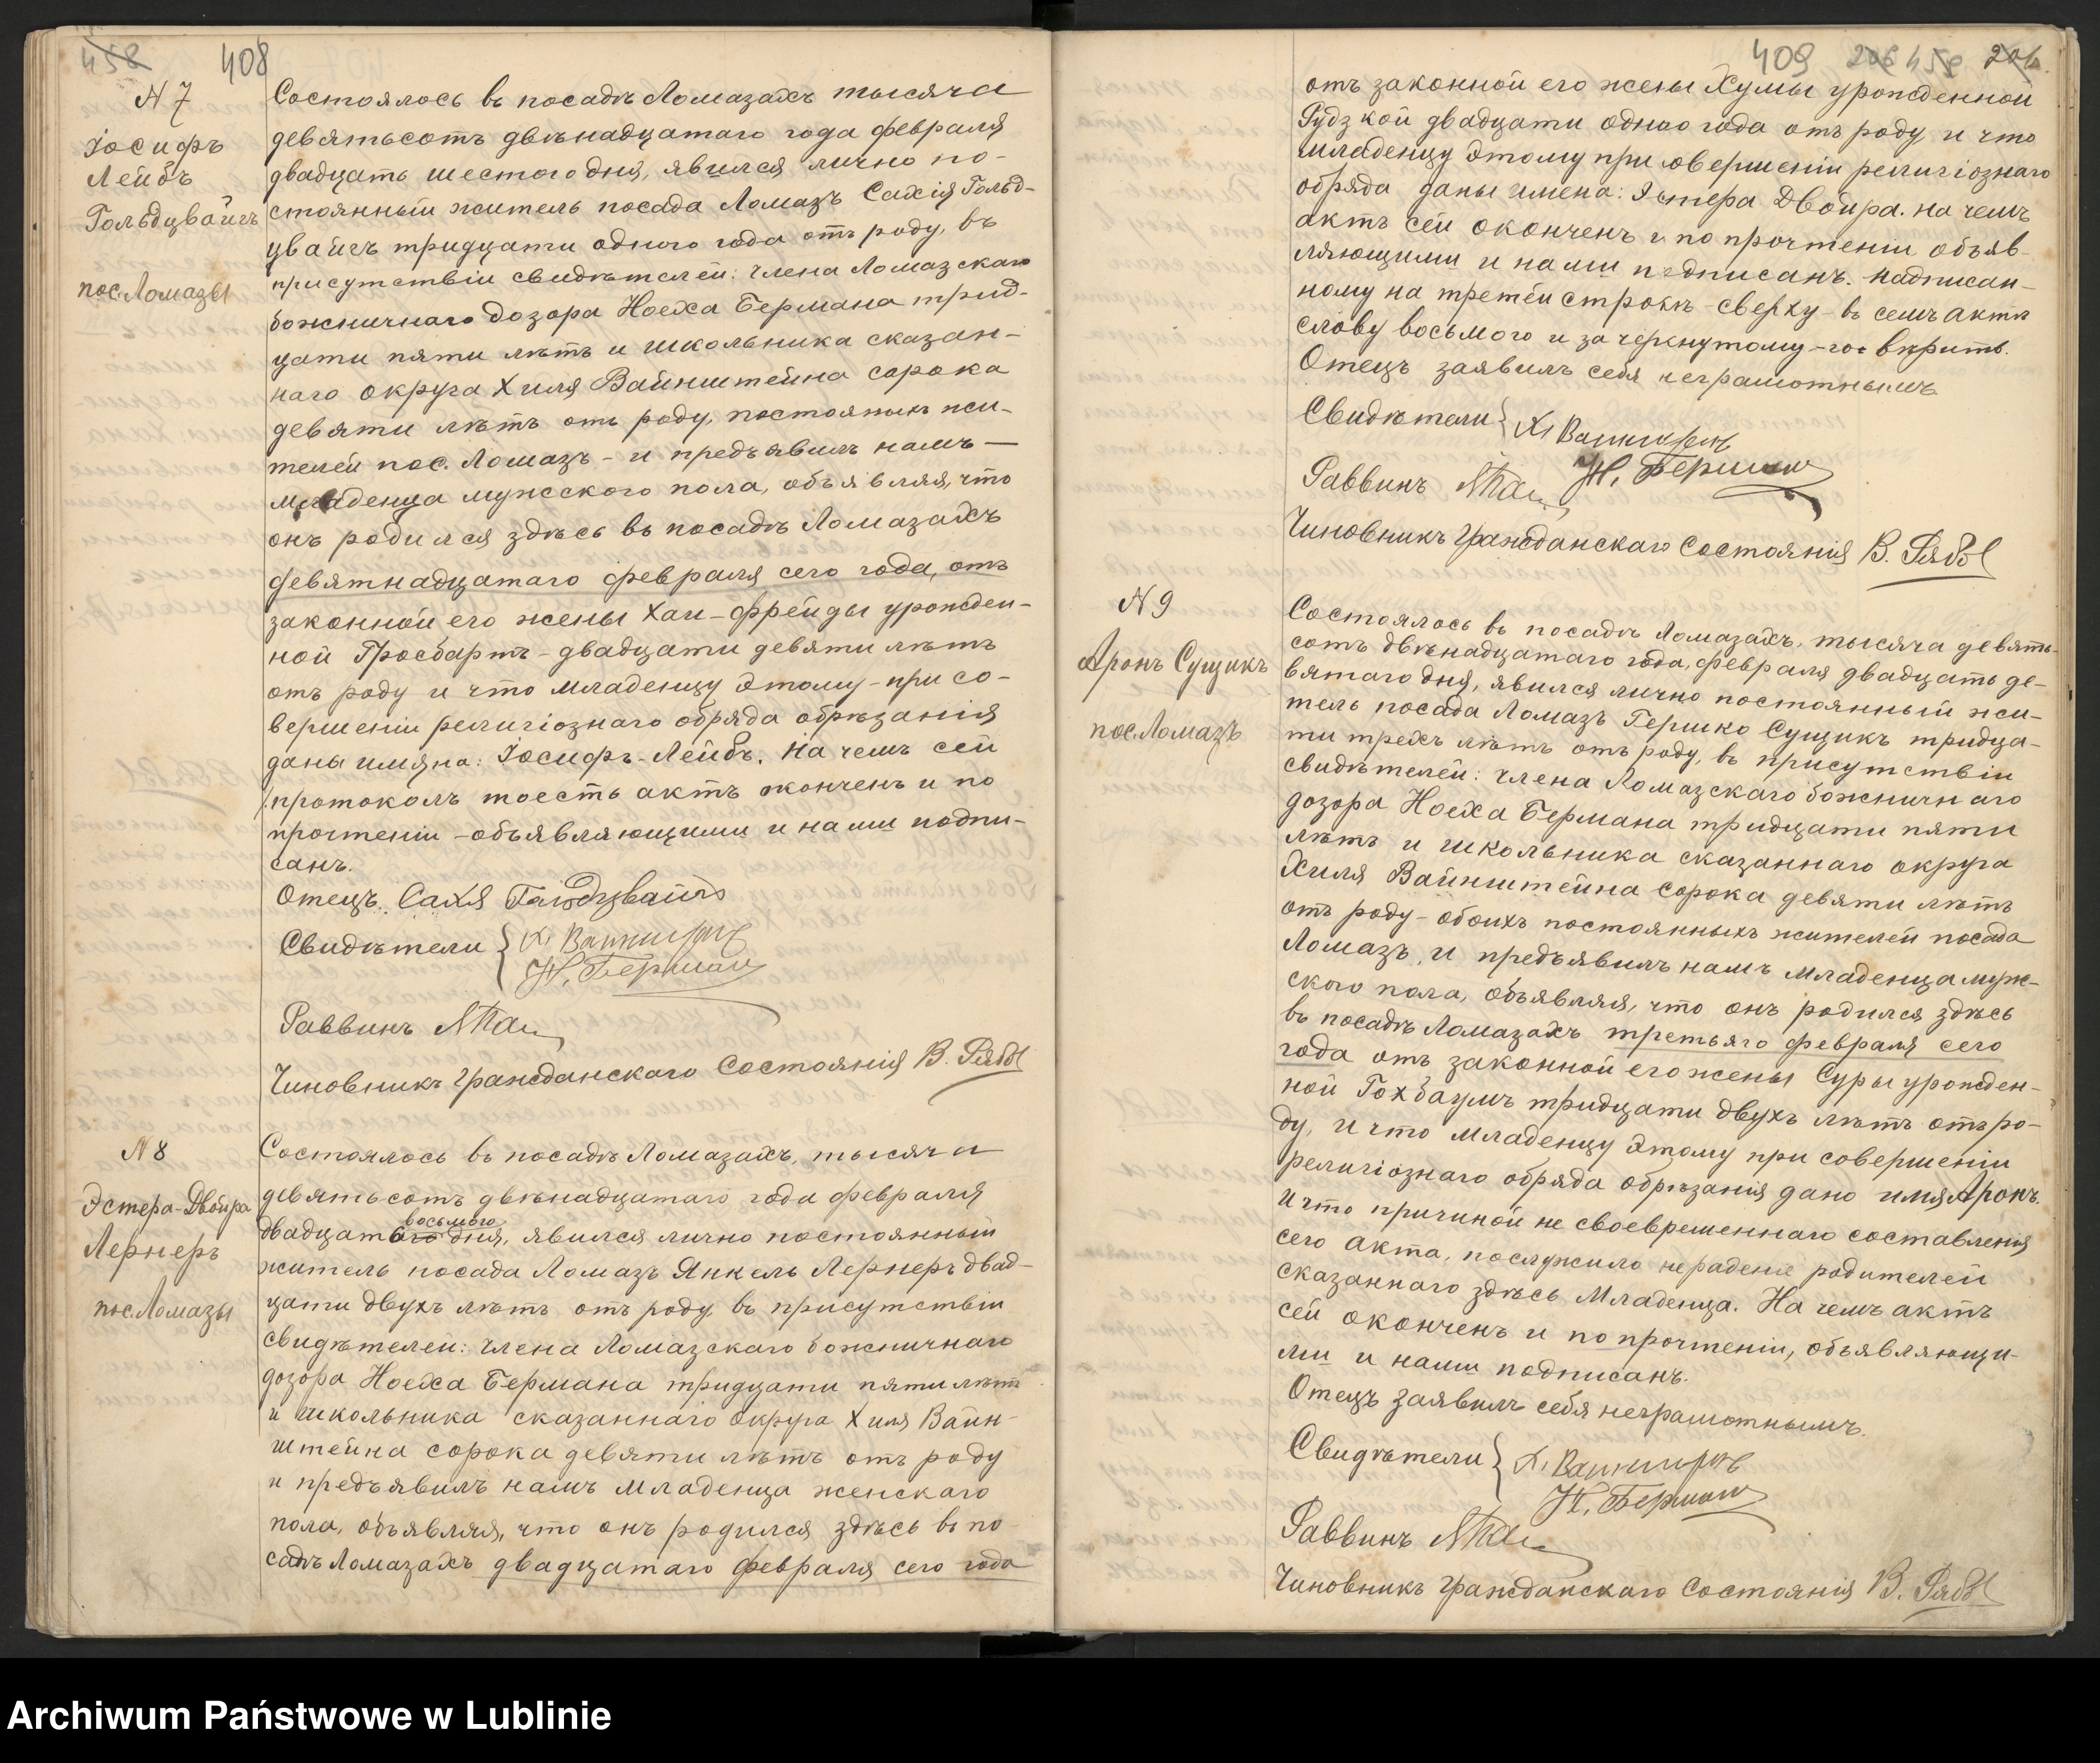 458 408
N 7
Іосифъ
Лейбъ
Гольдцвайгъ
пос. Ломазы
Состоялось въ посадѣ Ломазахъ тысяча
девятьсотъ двѣнадцатаго года февраля
двадцать шестого дня, явился лично по-
стоянный житель посада Ломазъ Сахія Гольд-
цвайгъ тридцати одного года отъ роду, въ
присутствіи свидѣтелей: члена Ломазскаго
божничнаго дозора Ноеха Бермана трид-
цати пяти лѣтъ и школьника сказан-
наго округа Хиля Вайнштейна сорока
девяти лѣтъ отъ роду, постоянныхъ жи-
телей пос. Ломазъ - и предъявилъ намъ —
младенца мужескаго пола, объявляя, что
онъ родился здѣсь въ посадѣ Ломазахъ
девятнадцатаго февраля сего года, отъ
законной его жены Хаи-Фрейды урожден-
ной Гросбартъ - двадцати девяти лѣтъ
отъ роду и что младенцу этому - при со-
вершеніи религіознаго обряда обрѣзанія
даны имяна: Іосифъ-Лейбъ. На чемъ сей
протоколъ тоесть актъ оконченъ и по
прочтеніи - объявляющими и нами подпи-
санъ.
Отецъ Сахя Гольдцвайгъ
Свидѣтели { Х. Вайнштейнъ
Н. Берман
Раввинъ
Чиновникъ Гражданскаго Состоянія В. Рябы
N 8
Эстера-Двойра
Лернеръ
пос. Ломазы
Состоялось въ посадѣ Ломазахъ, тысяча
девятьсотъ двѣнадцатаго года февраля
восьмого
двадцатаго дня, явился лично постоянный
житель посада Ломазъ Янкель Лернеръ двад-
цати двухъ лѣтъ отъ роду въ присутствіи
свидѣтелей: члена Ломазскаго божничнаго
дозора Ноеха Бермана тридцати пяти лѣтъ
и школьника сказаннаго округа Хиля Вайн-
штейна сорока девяти лѣтъ отъ роду
и предъявилъ намъ младенца женскаго
пола, объявляя, что онъ родился здѣсь въ по-
садѣ Ломазахъ двадцатаго февраля сего года
409 206 459 206
отъ законной его жены Хумы урожденной
Рудзкой двадцати одного года отъ роду и что
младенцу этому при совершеніи религіознаго
обряда даны имена: Эстера Двойра. на чемъ
актъ сей оконченъ и по прочтеніи объяв-
ляющими и нами подписанъ. Надписан-
ному на третей строкѣ - сверху - въ семъ актѣ
слову восьмого и зачеркнутому - го вѣрить.
Отецъ заявилъ себя неграмотнымъ.
Свидѣтели { Х. Вайнштейнъ
Н. Берман
Раввинъ
Чиновникъ Гражданскаго Состоянія В. Рябы
N 9
Аронъ Сущикъ
пос. Ломазъ
Состоялось въ посадѣ Ломазахъ, тысяча девять-
сотъ двѣнадцатаго года, февраля двадцать де-
вятаго дня, явился лично постоянный жи-
тель посада Ломазъ Гершко Сущикъ тридца-
ти трехъ лѣтъ отъ роду, въ присутствіи
свидѣтелей: члена Ломазскаго божничнаго
дозора Ноеха Бермана тридцати пяти
лѣтъ и школьника сказаннаго округа
Хиля Вайнштейна сорока девяти лѣтъ
отъ роду - обоихъ постоянныхъ жителей посада
Ломазъ, и предъявилъ намъ младенца муж-
ского пола, объявляя, что онъ родился здѣсь
въ посадѣ Ломазахъ третьяго февраля сего
года отъ законной его жены Суры урожден-
ной Гохбаумъ тридцати двухъ лѣтъ отъ ро-
ду, и что младенцу этому при совершеніи
религіознаго обряда обрѣзанія дано имя Аронъ.
И что причиной не своевременнаго составленія
сего акта, послужило нерадение родителей
сказаннаго здѣсь младенца. На чемъ актъ
сей оконченъ и по прочтеніи, объявляющи-
ми и нами подписанъ.
Отецъ заявилъ себя неграмотнымъ.
Свидѣтели { Х. Вайнштейнъ
Н. Берман
Раввинъ
Чиновникъ Гражданскаго Состоянія В. Рябы
Archiwum Państwowe w Lublinie